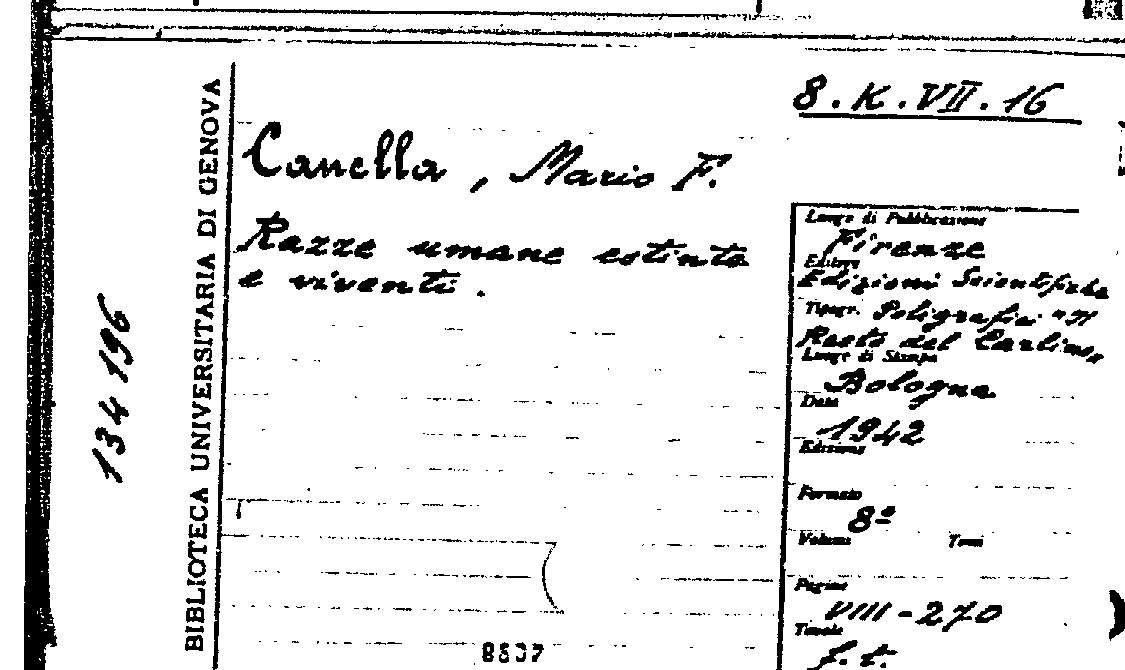 8.K.VII.16
Canella, Mario F.
Razze umane estinte
e viventi.
134196
BIBLIOTECA UNIVERSITARIA DI GENOVA
Luogo di Pubblicazione
Firenze
Editore
Edizioni Scientifiche
Tipogr. Poligrafici "Il
Resto del Carlino"
Luogo di Stampa
Bologna
Data
1942
Edizione
Formato
8º
Volumi Tomi
Pagine
VIII-270
Tavole
f. t.
8637